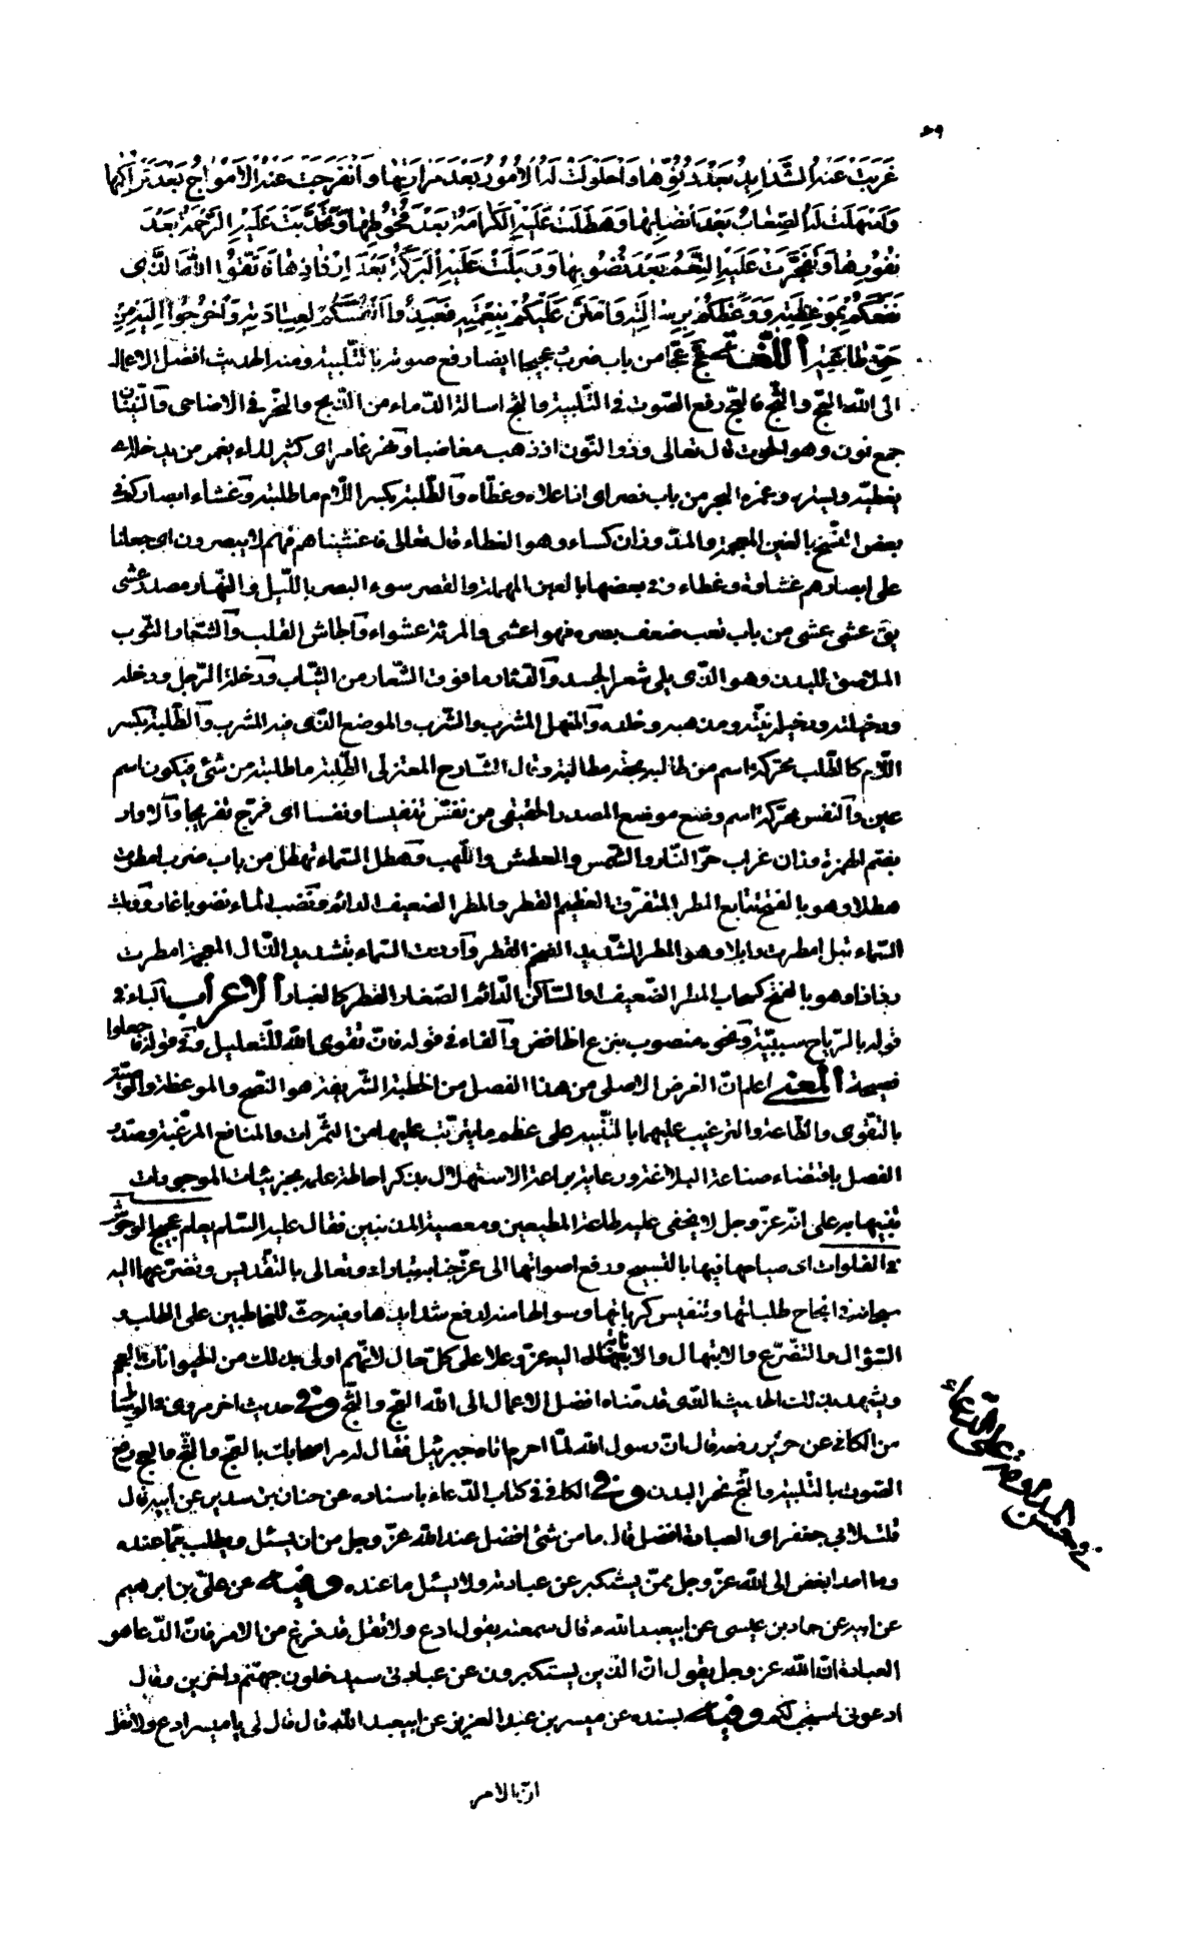 عَزَبَتْ عَنْهُ الشَّدَائِدُ بَعْدَ دُنُوِّهَا وَاحْلَوْلَتْ لَهُ الْأُمُورُ بَعْدَ مَرَارَتِهَا وَانْفَرَجَتْ عَنْهُ الْأَمْوَاجُ بَعْدَ تَرَاكُمِهَا
وَأَسْهَلَتْ لَهُ الصِّعَابُ بَعْدَ إِنْصَابِهَا وَهَطَلَتْ عَلَيْهِ الْكَرَامَةُ بَعْدَ قُحُوطِهَا وَتَحَدَّبَتْ عَلَيْهِ الرَّحْمَةُ بَعْدَ
نُفُورِهَا وَتَفَجَّرَتْ عَلَيْهِ النِّعَمُ بَعْدَ نُضُوبِهَا وَوَبَلَتْ عَلَيْهِ الْبَرَكَةُ بَعْدَ إِرْذَاذِهَا فَاتَّقُوا اللَّهَ الَّذِي
نَفَعَكُمْ بِمَوْعِظَتِهِ وَوَعَظَكُمْ بِرِسَالَتِهِ وَامْتَنَّ عَلَيْكُمْ بِنِعْمَتِهِ فَعَبِّدُوا أَنْفُسَكُمْ لِعِبَادَتِهِ وَاخْرُجُوا إِلَيْهِ مِنْ
حَقِّ طَاعَتِهِ اللّغة عجّ عجّا من باب ضرب وعجيجا ايضا رفع صوته بالتّلبية ومنه الحديث افضل الاعمال
الى اللّه العجّ والثّجّ فالعجّ رفع الصّوت في التّلبية والثّج اسالة الدّماء من الذّبح والنّحر في الاضاحى والنّينان
جمع نون وهو الحوت قال تعالى وذو النّون اذ ذهب مغاضبا وبحر غامر اى كثير الماء يغمر من يدخله اى
يغطّيه ويستره وغمره البحر من باب نصر اى اذا علاه وغطّاه والطّلبة بكسر اللّام ما طلبته وغشاء ابصاركم في
بعض النّسخ بالغين المعجمة والمدّ وزان كساء وهو الغطاء قال تعالى فاغشيناهم فهم لا يبصرون اى جعلنا
على ابصارهم غشاوة وغطاء وفي بعضها بالعين المهملة والقصر سوء البصر باللّيل والنّهار مصدر عشى
يق عشى عشى من باب تعب ضعف بصره فهو اعشى والمرئة عشواء والجاش القلب والشّعار الثّوب
الملاصق للبدن وهو الذّى يلى شعر الجسد والدّثار ما فوق الشّعار من الثّياب ودخلة الرّجل ودخله
ودخيلته ودخيله نيّته ومذهبه وخلده والمنهل المشرب والشّرب والموضع الذّى فيه المشرب والطّلبة بكسر
اللّام كالطّلب محرّكة اسم من طالبه بحقه مطالبة وقال الشّارح المعتزلى الطّلبة ما طلبته من شئ فيكون اسم
عين والنّفس محرّكة اسم وضع موضع المصدر الحقيقى من نفّس تنفيسا ونفسا اى فرّج تفريجا والاوار
بضم الهمزة وزان غراب حرّ النّار والشّمس والعطش واللّهب وهطل السّماء تهطل من باب ضرب امطرت
هطلا وهو بالفتح تتابع المطر المتفرّق العظيم القطر والمطر الضعيف الدائم ونضب الماء نضوبا غار ووبلت
السّماء تبل امطرت وابلا وهو المطر الشّديد الضخم القطر وارذت السّماء بتشديد الذّال المعجمة امطرت
رذاذا وهو بالفتح كسحاب المطر الضّعيف او السّاكن الدّائم الصّغار القطر كالغبار الاعراب الباء في
قوله بالرّياح سببيّة ونحو منصوب بنزع الخافض والفاء في قوله فانّ تقوى اللّه للتّعليل وفي قوله فاجعلوا
فصيحة المعنى اعلم انّ الغرض الاصلى من هذا الفصل من الخطبة الشّريفة هو النّصح والموعظة والوصيّة
بالتّقوى والطّاعة والترغيب عليهما بالتّنبيه على عظم ما يترتّب عليهما من الثّمرات والمنافع المرغّبة وصدّر
الفصل باقتضاء صناعة البلاغة ورعاية براعة الاستهلال بذكر احاطة علمه بجزئيّات الموجودات
تنبيها به على انّه عزّ وجل لا يخفى عليه طاعة المطيعين ومعصية المذنبين فقال عليه السّلام يعلم عجيج الوحوش
في الفلوات اى صياحها فيها بالتّسبيح ورفع اصواتها الى عزّ جنابه تبارك وتعالى بالتقديس وتضرّعها اليه
سبحانه في انجاح طلباتها وتنفيس كرباتها وسؤالها منه لدفع شدايدها وفيه حثّ للمخاطبين على الطلب و
السّؤال والتّضرّع والابتهال والانابة اليه عزّ وعلا على كلّ حال لانّهم اولى بذلك من الحيوانات العجم
ويشهد بذلك الحديث الذّى قدّمناه افضل الاعمال الى اللّه العجّ والثّجّ وفي حديث اخر مروىّ في الوسائل
من الكافى عن حريز رفعه قال انّ رسول اللّه لمّا احرم اتاه جبرئيل فقال له مر اصحابك بالعجّ والثّجّ فالعجّ رفع
الصّوت بالتّلبية والثّج نحر البدن وفي الكافى في كتاب الدّعاء باسناده عن حنان بن سدير عن ابيه قال
قلت لابى جعفر اى العبادة افضل قال ما من شئ افضل عند اللّه عزّ وجل من ان يسئل ويطلب ممّا عنده
وما احد ابغض الى اللّه عزّ وجل ممّن يستكبر عن عبادته ولا يسئل ما عنده وفيه عن علىّ بن ابرهيم
عن ابيه عن حماد بن عيسى عن ابيعبد اللّه قال سمعته يقول ادع ولا تقل قد فرغ من الامر فانّ الدّعا هو
العبادة انّ اللّه عز وجل يقول انّ الذّين يستكبرون عن عبادتى سيدخلون جهنّم داخرين وقال
ادعونى استجب لكم وفيه بسنده عن ميسر بن عبد العزيز عن ابيعبد اللّه قال قال لى يا ميسر ادع ولا تقل
انّ الامر